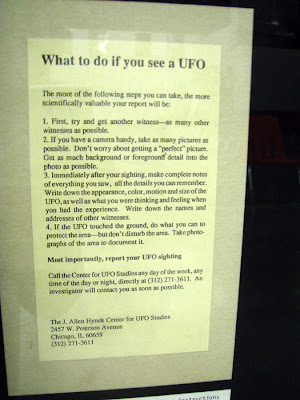 What to do if you see a UFO
The more of the following steps you can take, the more
scientifically valuable your report will be:
1. First, try and get another witness—as many other
witnesses as possible.
2. If you have a camera handy, take as many pictures as
possible. Don't worry about getting a "perfect" picture.
Get as much background or foreground detail into the
photo as possible.
3. Immediately after your sighting, make complete notes
of everything you saw, all the details you can remember.
Write down the appearance, color, motion and size of the
UFO, as well as what you were thinking and feeling when
you had the experience. Write down the names and
addresses of other witnesses.
4. If the UFO touched the ground, do what you can to
protect the area—but don't disturb the area. Take photo-
graphs of the area to document it.
Most importantly, report your UFO sighting
Call the Center for UFO Studies any day of the week, any
time of the day or night, directly at (312) 271-3611. An
investigator will contact you as soon as possible.
The J. Allen Hynek Center for UFO Studies
2457 W. Peterson Avenue
Chicago, IL 60659
(312) 271-3611
instructions